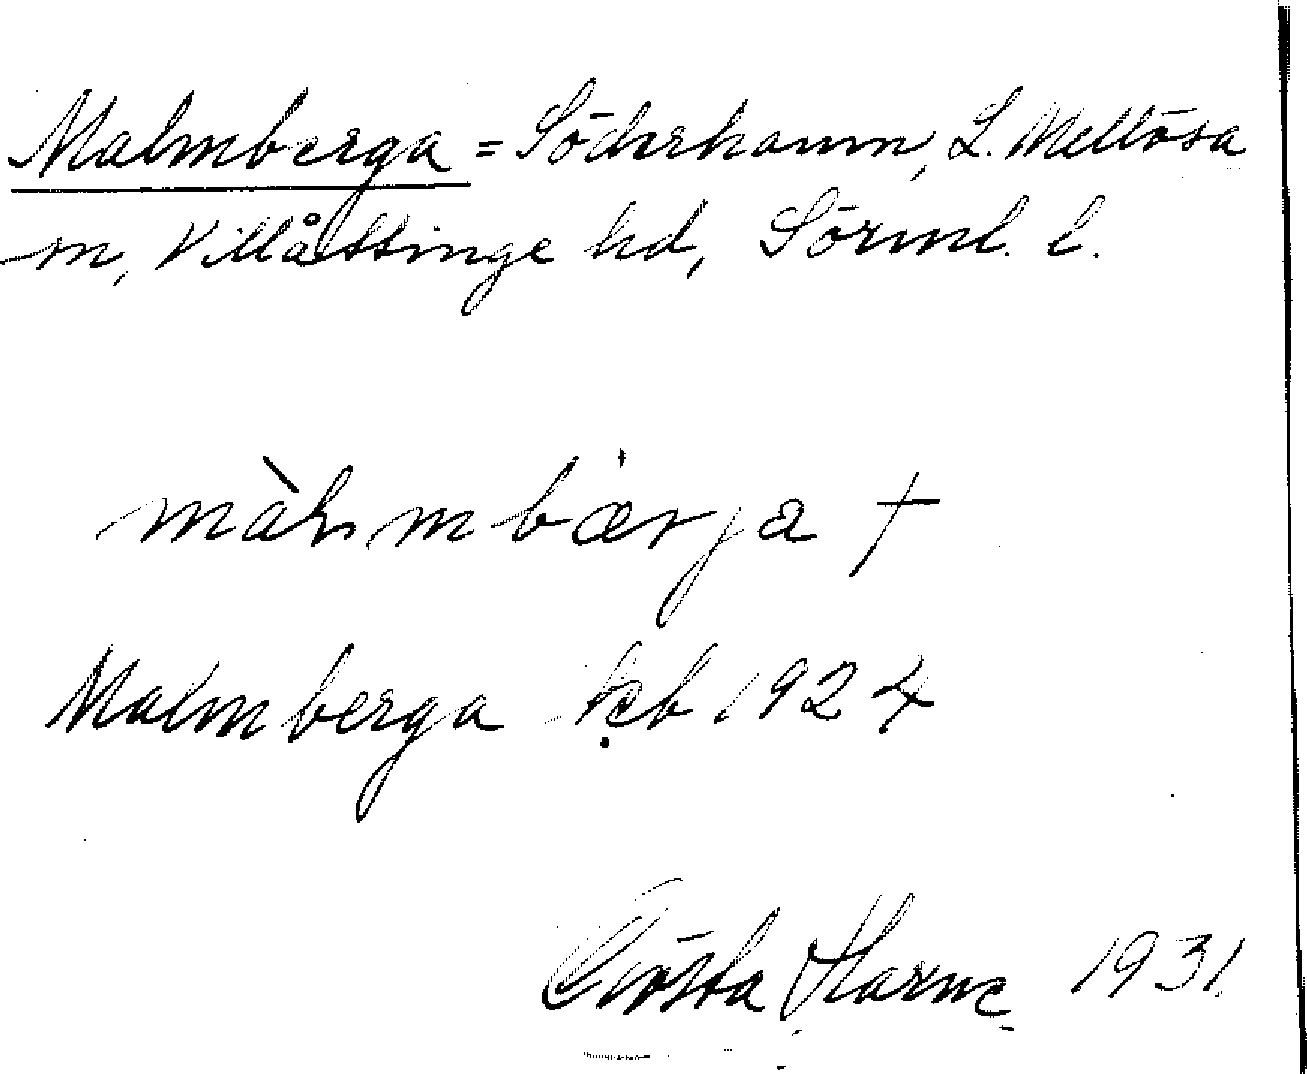 Malmberga = Söderhamn, L. Mellösa
sn, Villåttinge hd, Sörml. l.
màlmbærja †
Malmberga kb 1924
Gösta Harne 1931